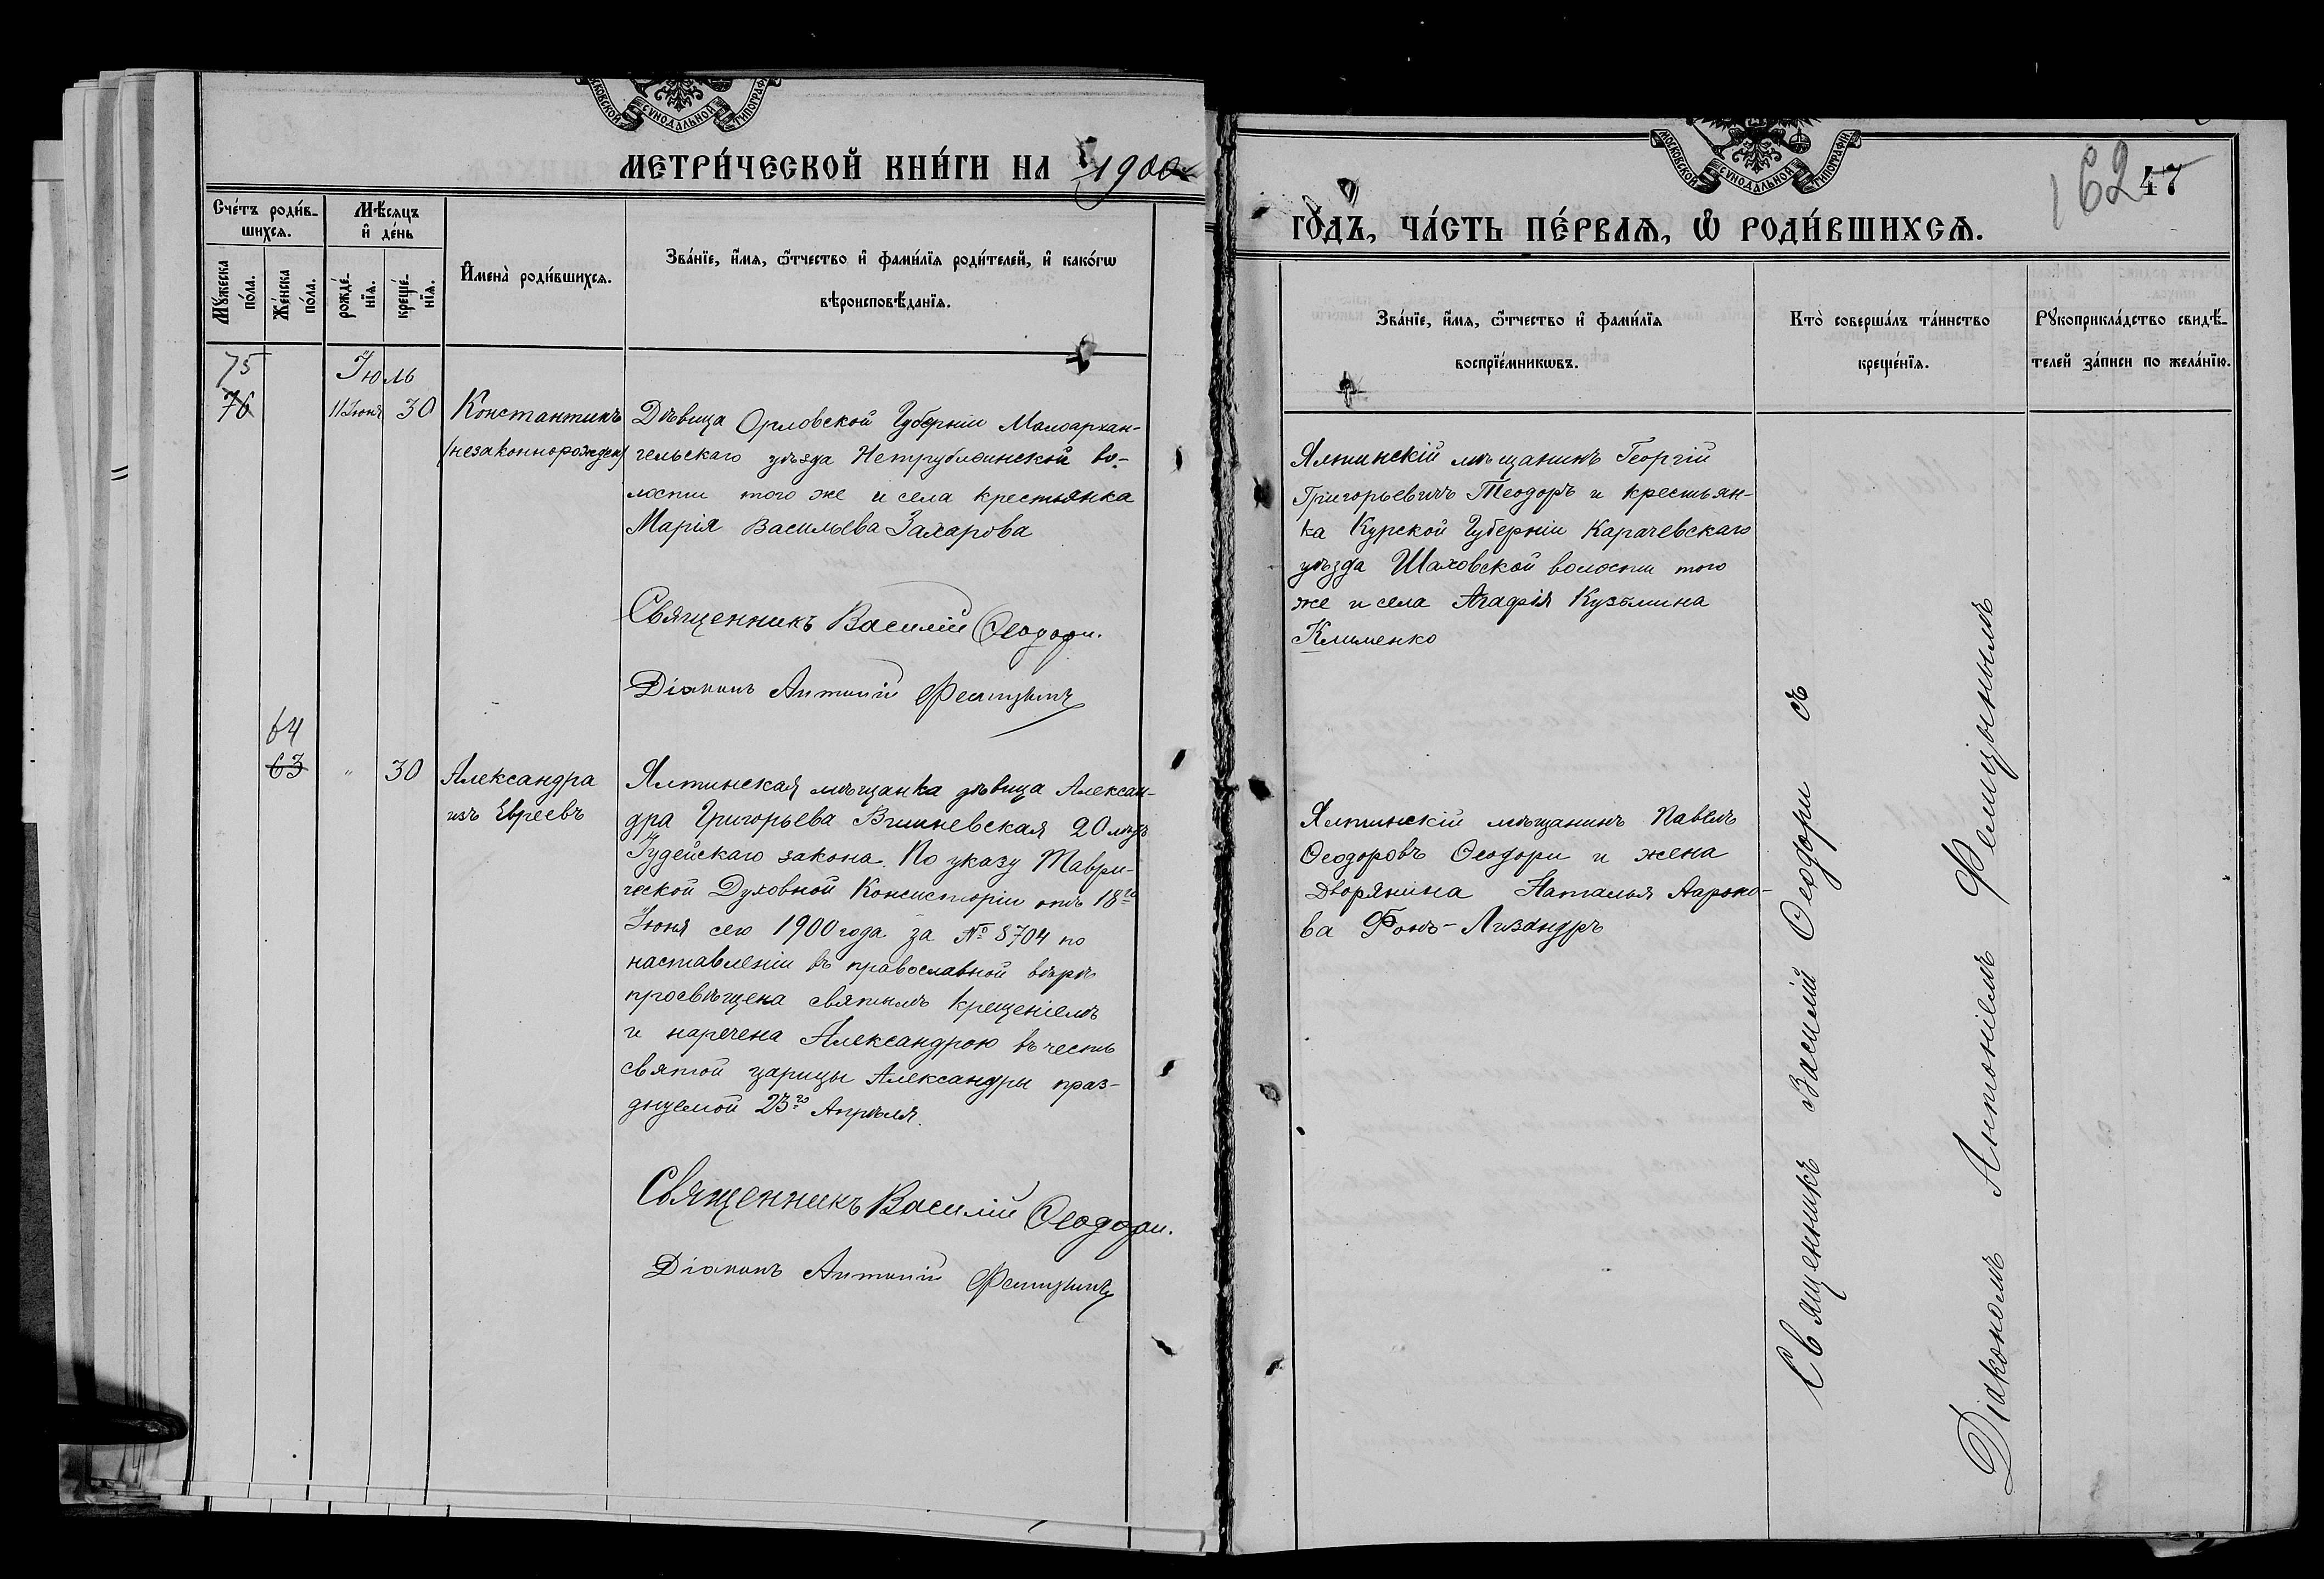 МОСКОВСКОЙ СУНОДАЛЬНОЙ ТИПОГРАФ
МЕТРИ́ЧЕСКОЙ КНИ́ГИ НА 1900
Сче́тъ роди́в-
шихсѧ.
Мѣ́сѧцъ
и҆ де́нь
Мꙋ́жеска
по́ла.
Же́нска
по́ла.
рожде́-
нїѧ.
креще́-
нїѧ.
И҆мена̀ роди́вшихсѧ.
Зва́нїе, и҆́мѧ, ѻ҆́тчество и҆ фами́лїѧ роди́телей, и҆ како́гѡ
вѣроисповѣ́данїѧ.
75
76
Іюль
11 Іюня 30
Константинъ
(незаконнорожден)
Дѣвица Орловской Губерніи Малоархан-
гельскаго уѣзда во-
лости того же и села крестьянка
Марія Васильева Захарова
Священникъ Василій Ѳеодори.
Діаконъ Антоній Фелицынъ
64
63
" 30
Александра
изъ Евреевъ
Ялтинская мѣщанка дѣвица Алексан-
дра Григорьева Вишневская 20 лѣтъ
Іудейскаго закона. По указу Таври-
ческой Духовной Консисторіи отъ 18го
Іюня сего 1900 года за № 8704 по
наставленіи въ православной вѣрѣ
просвѣщена святымъ крещеніемъ
и наречена Александрою въ честь
святой царицы Александры праз-
днуемой 23го Апрѣля.
Священникъ Василій Ѳеодори.
Діаконъ Антоній Фелицынъ
МОСКОВСКОЙ СУНОДАЛЬНОЙ ТИПОГРАФИ
162 47
ГО́ДЪ, ЧА́СТЬ ПЕ́РВАѦ, Ѡ҆ РОДИ́ВШИХСѦ.
Зва́нїе, и҆́мѧ, ѻ҆́тчество и҆ фами́лїѧ
воспрїе́мникѡвъ.
Кто̀ соверша́лъ та́инство
креще́нїѧ.
Рꙋкоприкла́дство свидѣ́-
телей за́писи по жела́нїю.
Ялтинскій мѣщанинъ Георгій
Григорьевичъ Теодоръ и крестьян-
ка Курской Губерніи Карачевскаго
уѣзда Шаховской волости того
же и села Агафія Кузьмина
Клименко
Ялтинскій мѣщанинъ Павелъ
Ѳеодоровъ Ѳеодори и жена
Дворянина Наталья Аароно-
ва Фонъ-Лизандръ
Священникъ Василій Ѳеодори съ
Діакономъ Антоніемъ Фелицынымъ